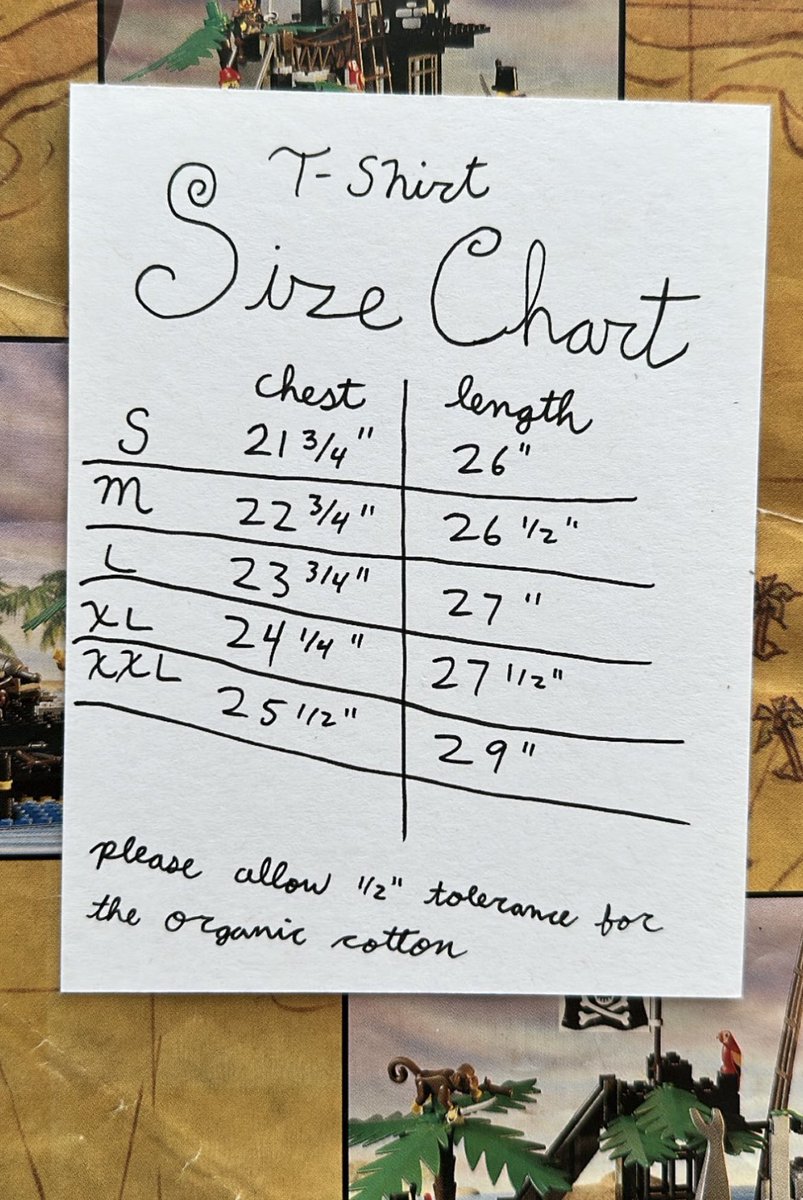 T-Shirt
Size Chart
chest length
S 21 3/4" 26"
M 22 3/4" 26 1/2"
L 23 3/4" 27"
XL 24 1/4" 27 1/2"
XXL 25 1/2" 29"
please allow 1/2" tolerance for
the organic cotton